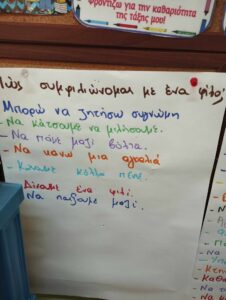 φροντίζω για την καθαριότητα
της τάξης μου!
Πώς συμφιλιώνομαι με ένα φίλο;
Μπορώ να ζητήσω συγνώμη
- Να κάτσουμε να μιλήσουμε.
- Να πάμε μαζί βόλτα.
- Να κάνω μια αγκαλιά
- Κάναμε κόλλα πέντε.
Δίναμε ένα φιλί.
Να παίξουμε μαζί.